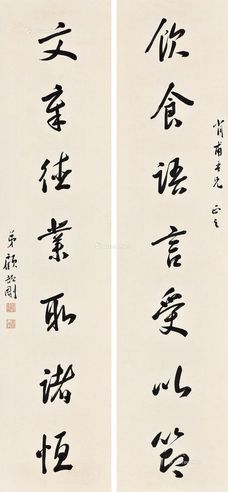 飲食語言受以節
肖甫吾兄 正之
文章德業取諸恒
弟顧頡剛